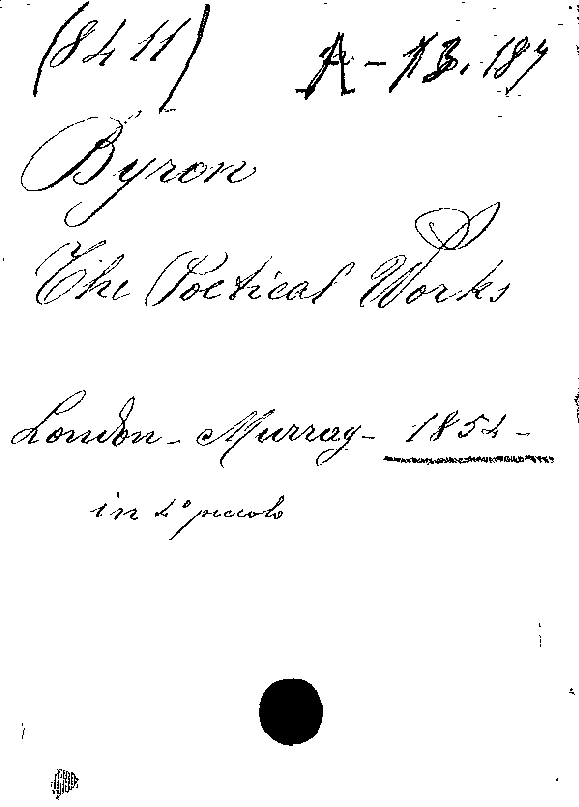 (8411) A - 13.
Byron
The Poetical Works
London - Murray - 1854 -
in 4° piccolo